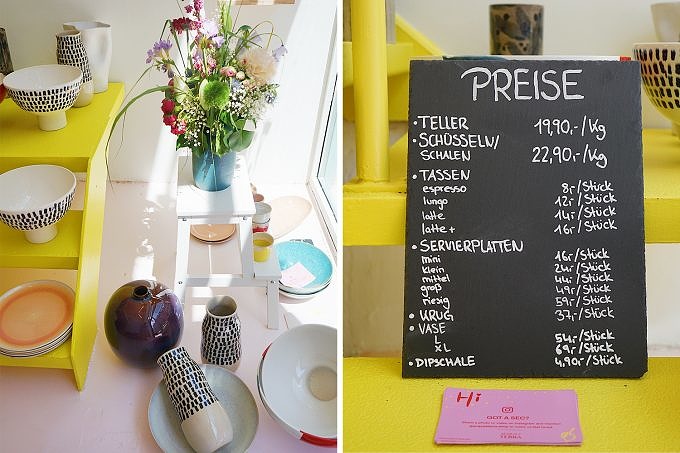 PREISE
• TELLER 19,90.-/Kg
• SCHÜSSELN/
SCHALEN 22,90.-/Kg
• TASSEN
espresso 8,-/Stück
lungo 12,-/Stück
latte 14,-/Stück
latte + 16,-/Stück
• SERVIERPLATTEN
mini 16,-/Stück
klein 24,-/Stück
mittel 44,-/Stück
groß 49,-/Stück
riesig 59,-/Stück
• KRUG 37,-/Stück
• VASE
L 54,-/Stück
XL 69,-/Stück
• DIPSCHALE 4,90.-/Stück
Hi
GOT A SEC?